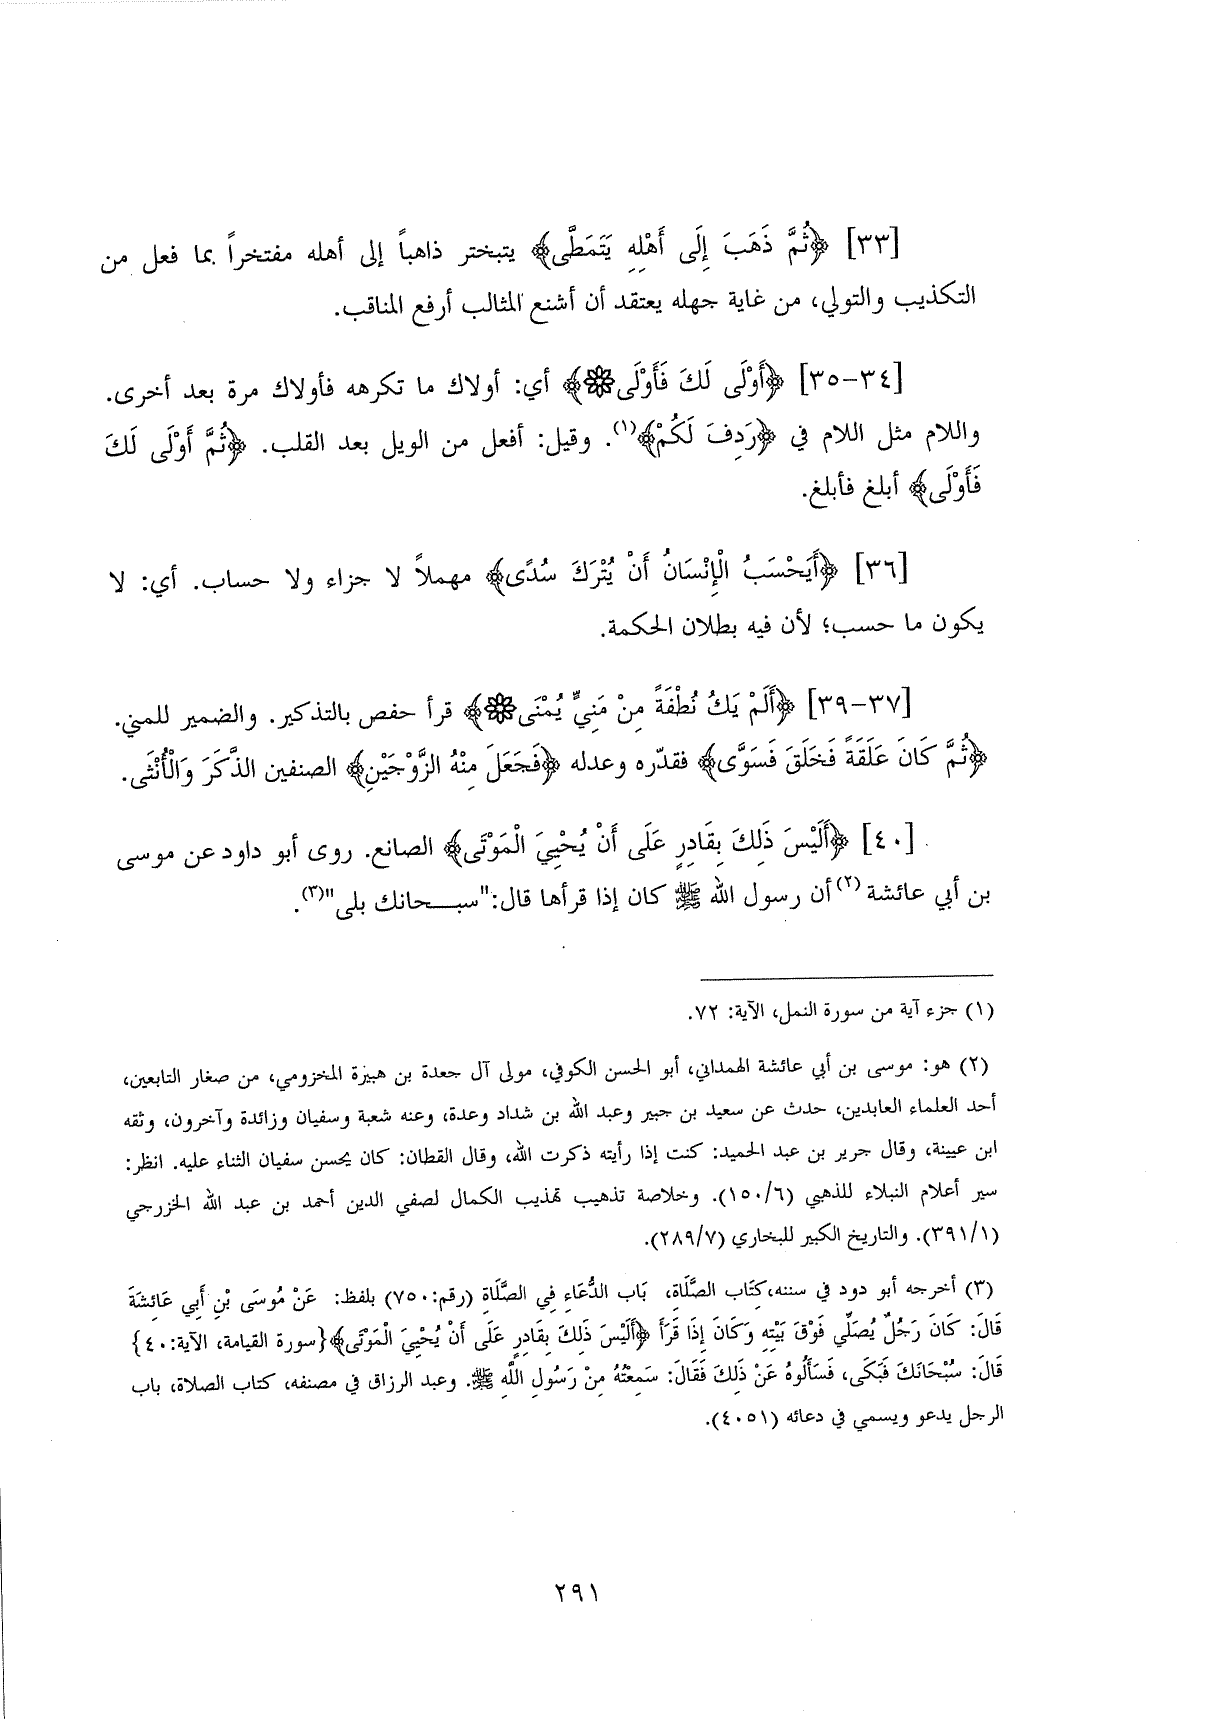 [٣٣] ﴿ثُمَّ ذَهَبَ إِلَى أَهْلِهِ يَتَمَطَّى﴾ يتبختر ذاهباً إلى أهله مفتخراً بما فعل من
التكذيب والتولي، من غاية جهله يعتقد أن أشنع المثالب أرفع المناقب.
[٣٤-٣٥] ﴿أَوْلَى لَكَ فَأَوْلَى۞﴾ أي: أولاك ما تكرهه فأولاك مرة بعد أخرى.
واللام مثل اللام في ﴿رَدِفَ لَكُمْ﴾(١). وقيل: أفعل من الويل بعد القلب. ﴿ثُمَّ أَوْلَى لَكَ
فَأَوْلَى﴾ أبلغ فأبلغ.
[٣٦] ﴿أَيَحْسَبُ الْإِنْسَانُ أَنْ يُتْرَكَ سُدًى﴾ مهملاً لا جزاء ولا حساب. أي: لا
يكون ما حسب؛ لأن فيه بطلان الحكمة.
[٣٧-٣٩] ﴿أَلَمْ يَكُ نُطْفَةً مِنْ مَنِيٍّ يُمْنَى۞﴾ قرأ حفص بالتذكير. والضمير للمني.
﴿ثُمَّ كَانَ عَلَقَةً فَخَلَقَ فَسَوَّى﴾ فقدّره وعدله ﴿فَجَعَلَ مِنْهُ الزَّوْجَيْنِ﴾ الصنفين الذَّكَرَ وَالْأُنْثَى.
[٤٠] ﴿أَلَيْسَ ذَلِكَ بِقَادِرٍ عَلَى أَنْ يُحْيِيَ الْمَوْتَى﴾ الصانع. روى أبو داود عن موسى
بن أبي عائشة (٢) أن رسول الله ﷺ كان إذا قرأها قال:"سبـــحانك بلى"(٣).
(١) جزء آية من سورة النمل، الآية: ٧٢.
(٢) هو: موسى بن أبي عائشة الهمداني، أبو الحسن الكوفي، مولى آل جعدة بن هبيرة المخزومي، من صغار التابعين،
أحد العلماء العابدين، حدث عن سعيد بن جبير وعبد الله بن شداد وعدة، وعنه شعبة وسفيان وزائدة وآخرون، وثقه
ابن عيينة، وقال جرير بن عبد الحميد: كنت إذا رأيته ذكرت الله، وقال القطان: كان يحسن سفيان الثناء عليه. انظر:
سير أعلام النبلاء للذهبي (٦/١٥٠). وخلاصة تذهيب تهذيب الكمال لصفي الدين أحمد بن عبد الله الخزرجي
(٣٩١/١). والتاريخ الكبير للبخاري (٢٨٩/٧).
(٣) أخرجه أبو دود في سننه،كتَاب الصَّلَاةِ، بَاب الدُّعَاءِ فِي الصَّلَاةِ (رقم:٧٥٠) بلفظ: عَنْ مُوسَى بْنِ أَبِي عَائِشَةَ
قَالَ: كَانَ رَجُلٌ يُصَلِّي فَوْقَ بَيْتِهِ وَكَانَ إِذَا قَرَأَ ﴿أَلَيْسَ ذَلِكَ بِقَادِرٍ عَلَى أَنْ يُحْيِيَ الْمَوْتَى﴾{سورة القيامة، الآية:٤٠}
قَالَ: سُبْحَانَكَ فَبَكَى، فَسَأَلُوهُ عَنْ ذَلِكَ فَقَالَ: سَمِعْتُهُ مِنْ رَسُولِ اللَّهِ ﷺ. وعبد الرزاق في مصنفه، كتاب الصلاة، باب
الرجل يدعو ويسمي في دعائه (٤٠٥١).
٢٩١